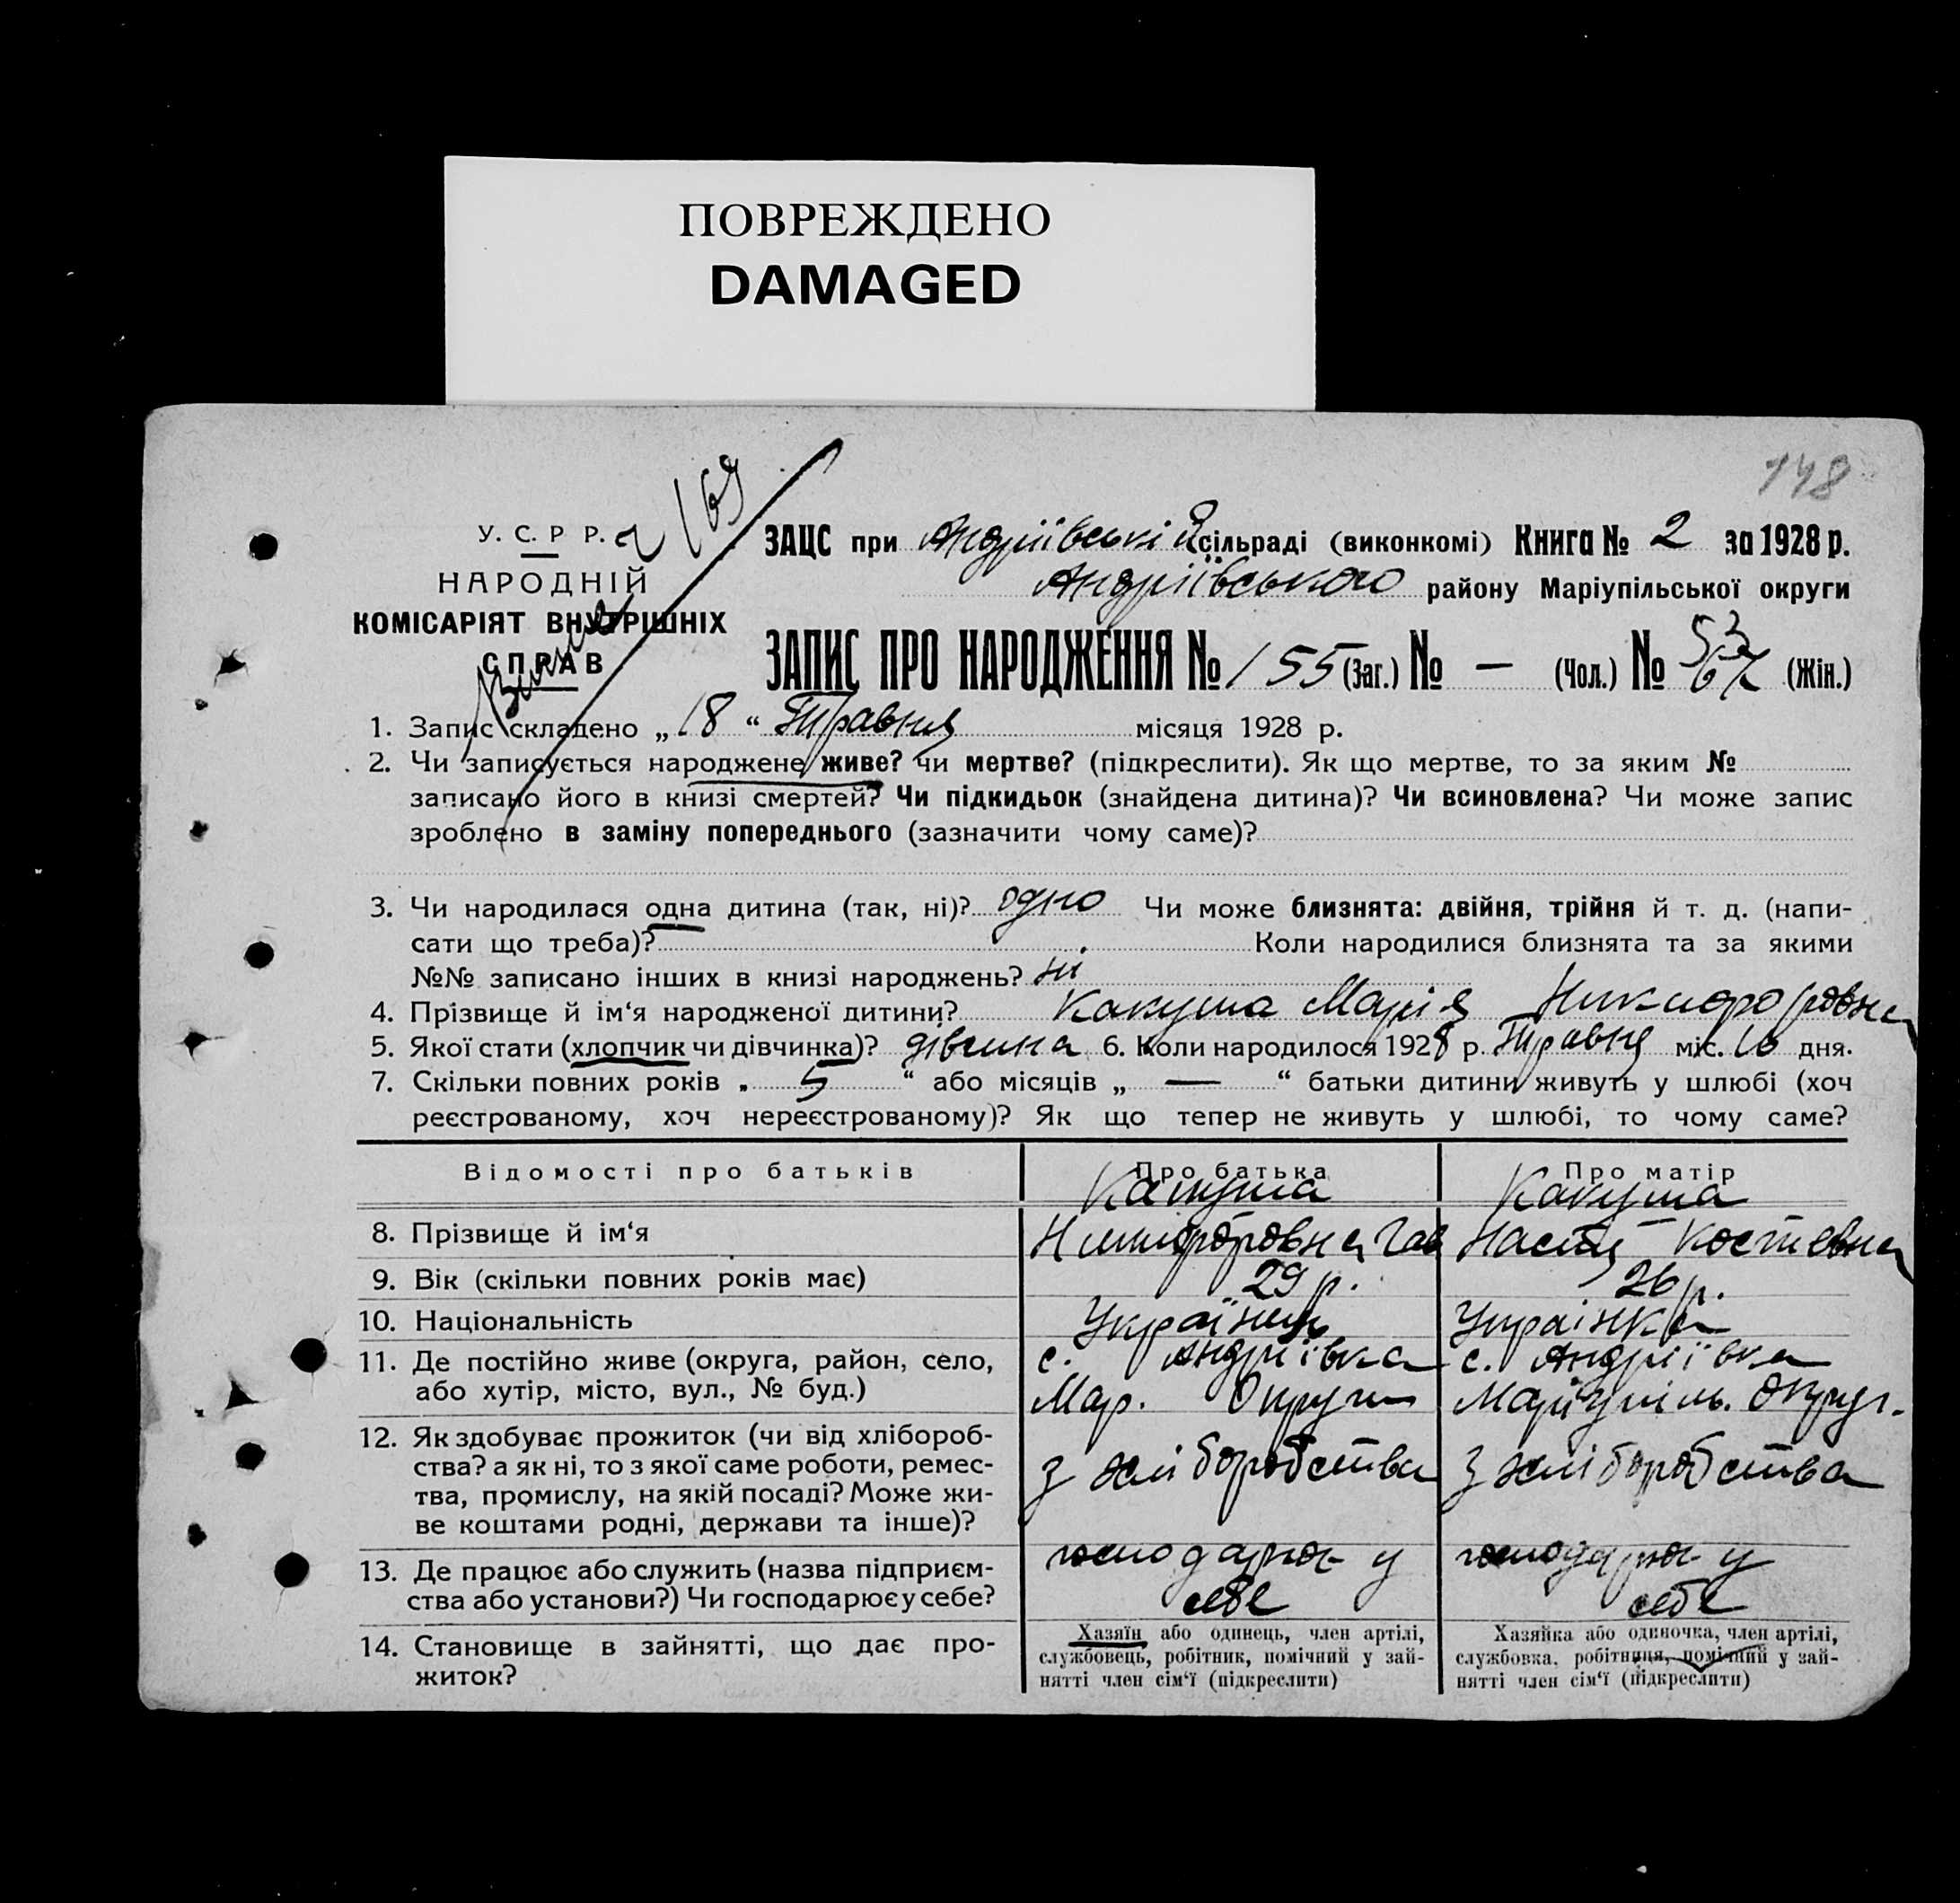 ПОВРЕЖДЕНО
DAMAGED
148
У. С. Р Р. 2/169
НАРОДНІЙ
КОМІСАРІЯТ ВНУТРІШНІХ
СПРАВ
ЗАЦС при Андріївській сільраді (виконкомі) Книга № 2 за 1928 р.
Андріївського району Маріупільської округи
ЗАПИС ПРО НАРОДЖЕННЯ № 155 (Заг.) № — (Чол.) № 53 67 (Жін.)
1. Запис складено „ 18 “ Травня місяця 1928 р.
2. Чи записується народжене живе? чи мертве? (підкреслити). Як що мертве, то за яким №
записано його в книзі смертей? Чи підкидьок (знайдена дитина)? Чи всиновлена? Чи може запис
зроблено в заміну попереднього (зазначити чому саме)?
3. Чи народилася одна дитина (так, ні)? одно Чи може близнята: двійня, трійня й т. д. (напи-
сати що треба)? Коли народилися близнята та за якими
№№ записано інших в книзі народжень? ні
4. Прізвище й ім‘я народженої дитини? Какуша Марія Никифоровна
5. Якої стати (хлопчик чи дівчинка)? дівчина 6. Коли народилося 1928 р. Травня міс. 16 дня.
7. Скільки повних років „ 5 “ або місяців „ — “ батьки дитини живуть у шлюбі (хоч
реєстрованому, хоч нереєстрованому)? Як що тепер не живуть у шлюбі, то чому саме?
Відомості про батьків Про батька Про матір
Какуша Какуша
8. Прізвище й ім‘я Настя Костевна
9. Вік (скільки повних років має) 29 р. 26 р.
10. Національність Українець Українка
11. Де постійно живе (округа, район, село, с. Андріївка с. Андріївка
або хутір, місто, вул., № буд.) Мар. Округи Маріупіль. Округ.
12. Як здобуває прожиток (чи від хлібороб-
ства? а як ні, то з якої саме роботи, ремес- з хліборобства з хліборобства
тва, промислу, на якій посаді? Може жи-
ве коштами родні, держави та інше)?
13. Де працює або служить (назва підприєм- господарює у господарює у
ства або установи?) Чи господарює у себе? себе себе
14. Становище в зайнятті, що дає про-
житок?
Хазяїн або одинець, член артілі,
службовець, робітник, помічний у зай-
нятті член сім‘ї (підкреслити)
Хазяйка або одиночка, член артілі,
службовка, робітниця, помічний у зай-
нятті член сім‘ї (підкреслити)